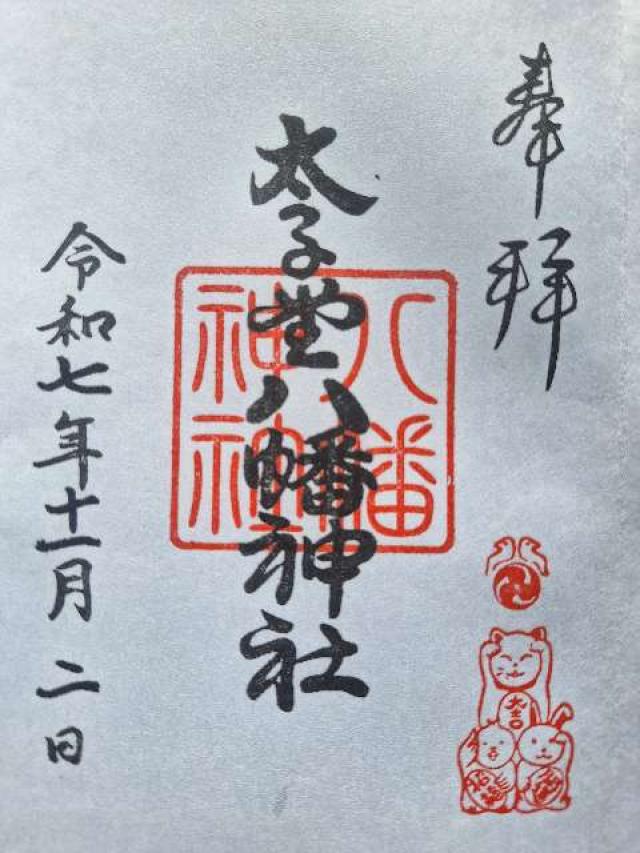 奉拝
太子堂八幡神社
八幡
神社
令和七年十一月二日
大吉